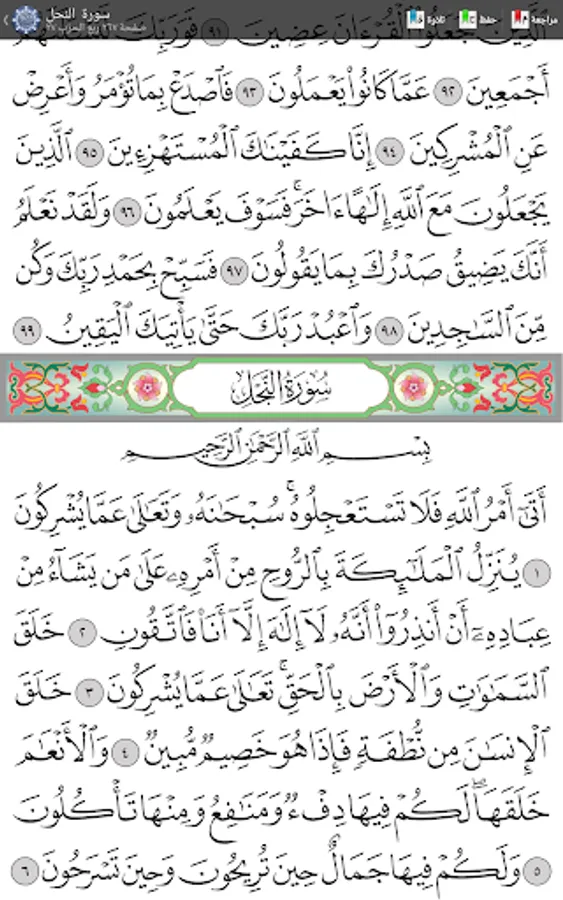 سورة النحل
صفحة ٢٦٧ ربع الحزب ٢٧
تلاوة
حفظ
مراجعة
ٱلَّذِينَ جَعَلُوا۟ ٱلْقُرْءَانَ عِضِينَ ٩١ فَوَرَبِّكَ
أَجْمَعِينَ ٩٢ عَمَّا كَانُوا۟ يَعْمَلُونَ ٩٣ فَٱصْدَعْ بِمَا تُؤْمَرُ وَأَعْرِضْ
عَنِ ٱلْمُشْرِكِينَ ٩٤ إِنَّا كَفَيْنَٰكَ ٱلْمُسْتَهْزِءِينَ ٩٥ ٱلَّذِينَ
يَجْعَلُونَ مَعَ ٱللَّهِ إِلَٰهًا ءَاخَرَ ۚ فَسَوْفَ يَعْلَمُونَ ٩٦ وَلَقَدْ نَعْلَمُ
أَنَّكَ يَضِيقُ صَدْرُكَ بِمَا يَقُولُونَ ٩٧ فَسَبِّحْ بِحَمْدِ رَبِّكَ وَكُن
مِّنَ ٱلسَّٰجِدِينَ ٩٨ وَٱعْبُدْ رَبَّكَ حَتَّىٰ يَأْتِيَكَ ٱلْيَقِينُ ٩٩
سُورَةُ النَّحْلِ
بِسْمِ ٱللَّهِ ٱلرَّحْمَٰنِ ٱلرَّحِيمِ
أَتَىٰٓ أَمْرُ ٱللَّهِ فَلَا تَسْتَعْجِلُوهُ ۚ سُبْحَٰنَهُۥ وَتَعَٰلَىٰ عَمَّا يُشْرِكُونَ
١ يُنَزِّلُ ٱلْمَلَٰٓئِكَةَ بِٱلرُّوحِ مِنْ أَمْرِهِۦ عَلَىٰ مَن يَشَآءُ مِنْ
عِبَادِهِۦٓ أَنْ أَنذِرُوٓا۟ أَنَّهُۥ لَآ إِلَٰهَ إِلَّآ أَنَا۠ فَٱتَّقُونِ ٢ خَلَقَ
ٱلسَّمَٰوَٰتِ وَٱلْأَرْضَ بِٱلْحَقِّ ۚ تَعَٰلَىٰ عَمَّا يُشْرِكُونَ ٣ خَلَقَ
ٱلْإِنسَٰنَ مِن نُّطْفَةٍ فَإِذَا هُوَ خَصِيمٌ مُّبِينٌ ٤ وَٱلْأَنْعَٰمَ
خَلَقَهَا ۗ لَكُمْ فِيهَا دِفْءٌ وَمَنَٰفِعُ وَمِنْهَا تَأْكُلُونَ
٥ وَلَكُمْ فِيهَا جَمَالٌ حِينَ تُرِيحُونَ وَحِينَ تَسْرَحُونَ ٦